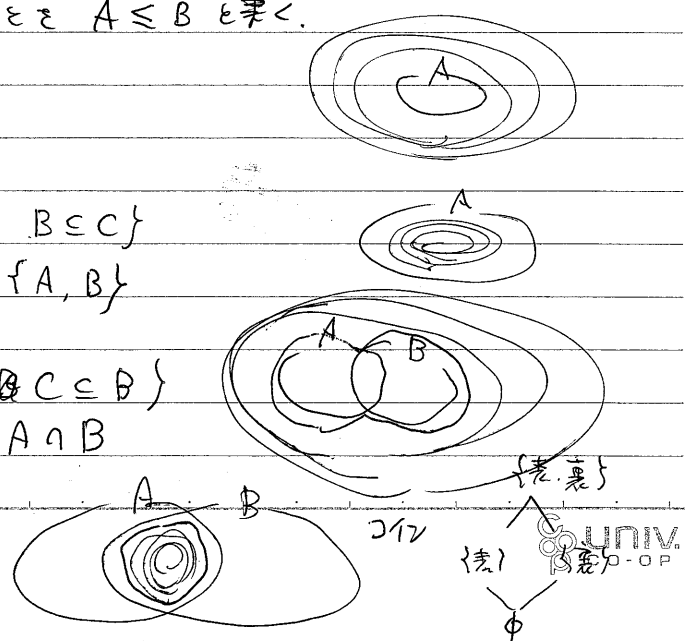 とき A ≤ B と書く.
A
A
B ⊆ C}
{A, B}
A B
C ⊆ B}
A ∩ B
{表, 裏}
A B
コイン
{表} {裏}
UNIV.
CO-OP
φ